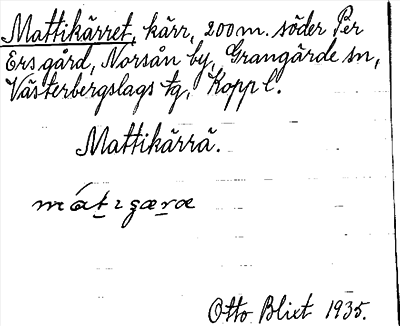 Mattikärret, kärr, 200 m. söder Per
Ers.gård, Norsån by, Grangärde sn,
Västerbergslags tg, Kopp l.
Mattikärrä.
Otto Blixt 1935.